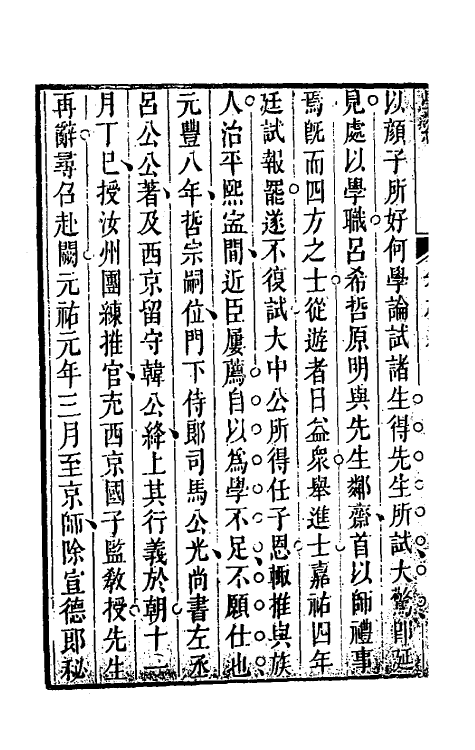 以顔子所好何學論試諸生得先生所試大驚卽延
見處以學職呂希哲原明與先生鄰齋首以師禮事
焉旣而四方之士從遊者日益衆舉進士嘉祐四年
廷試報罷遂不復試大中公所得任子恩輒推與族
人治平熙寍間近臣屢薦自以爲學不足不願仕也
元豐八年哲宗嗣位門下侍郎司馬公光尚書左丞
呂公公著及西京留守韓公絳上其行義於朝十一
月丁巳授汝州團練推官充西京國子監敎授先生
再辭尋召赴闕元祐元年三月至京師除宣德郎秘